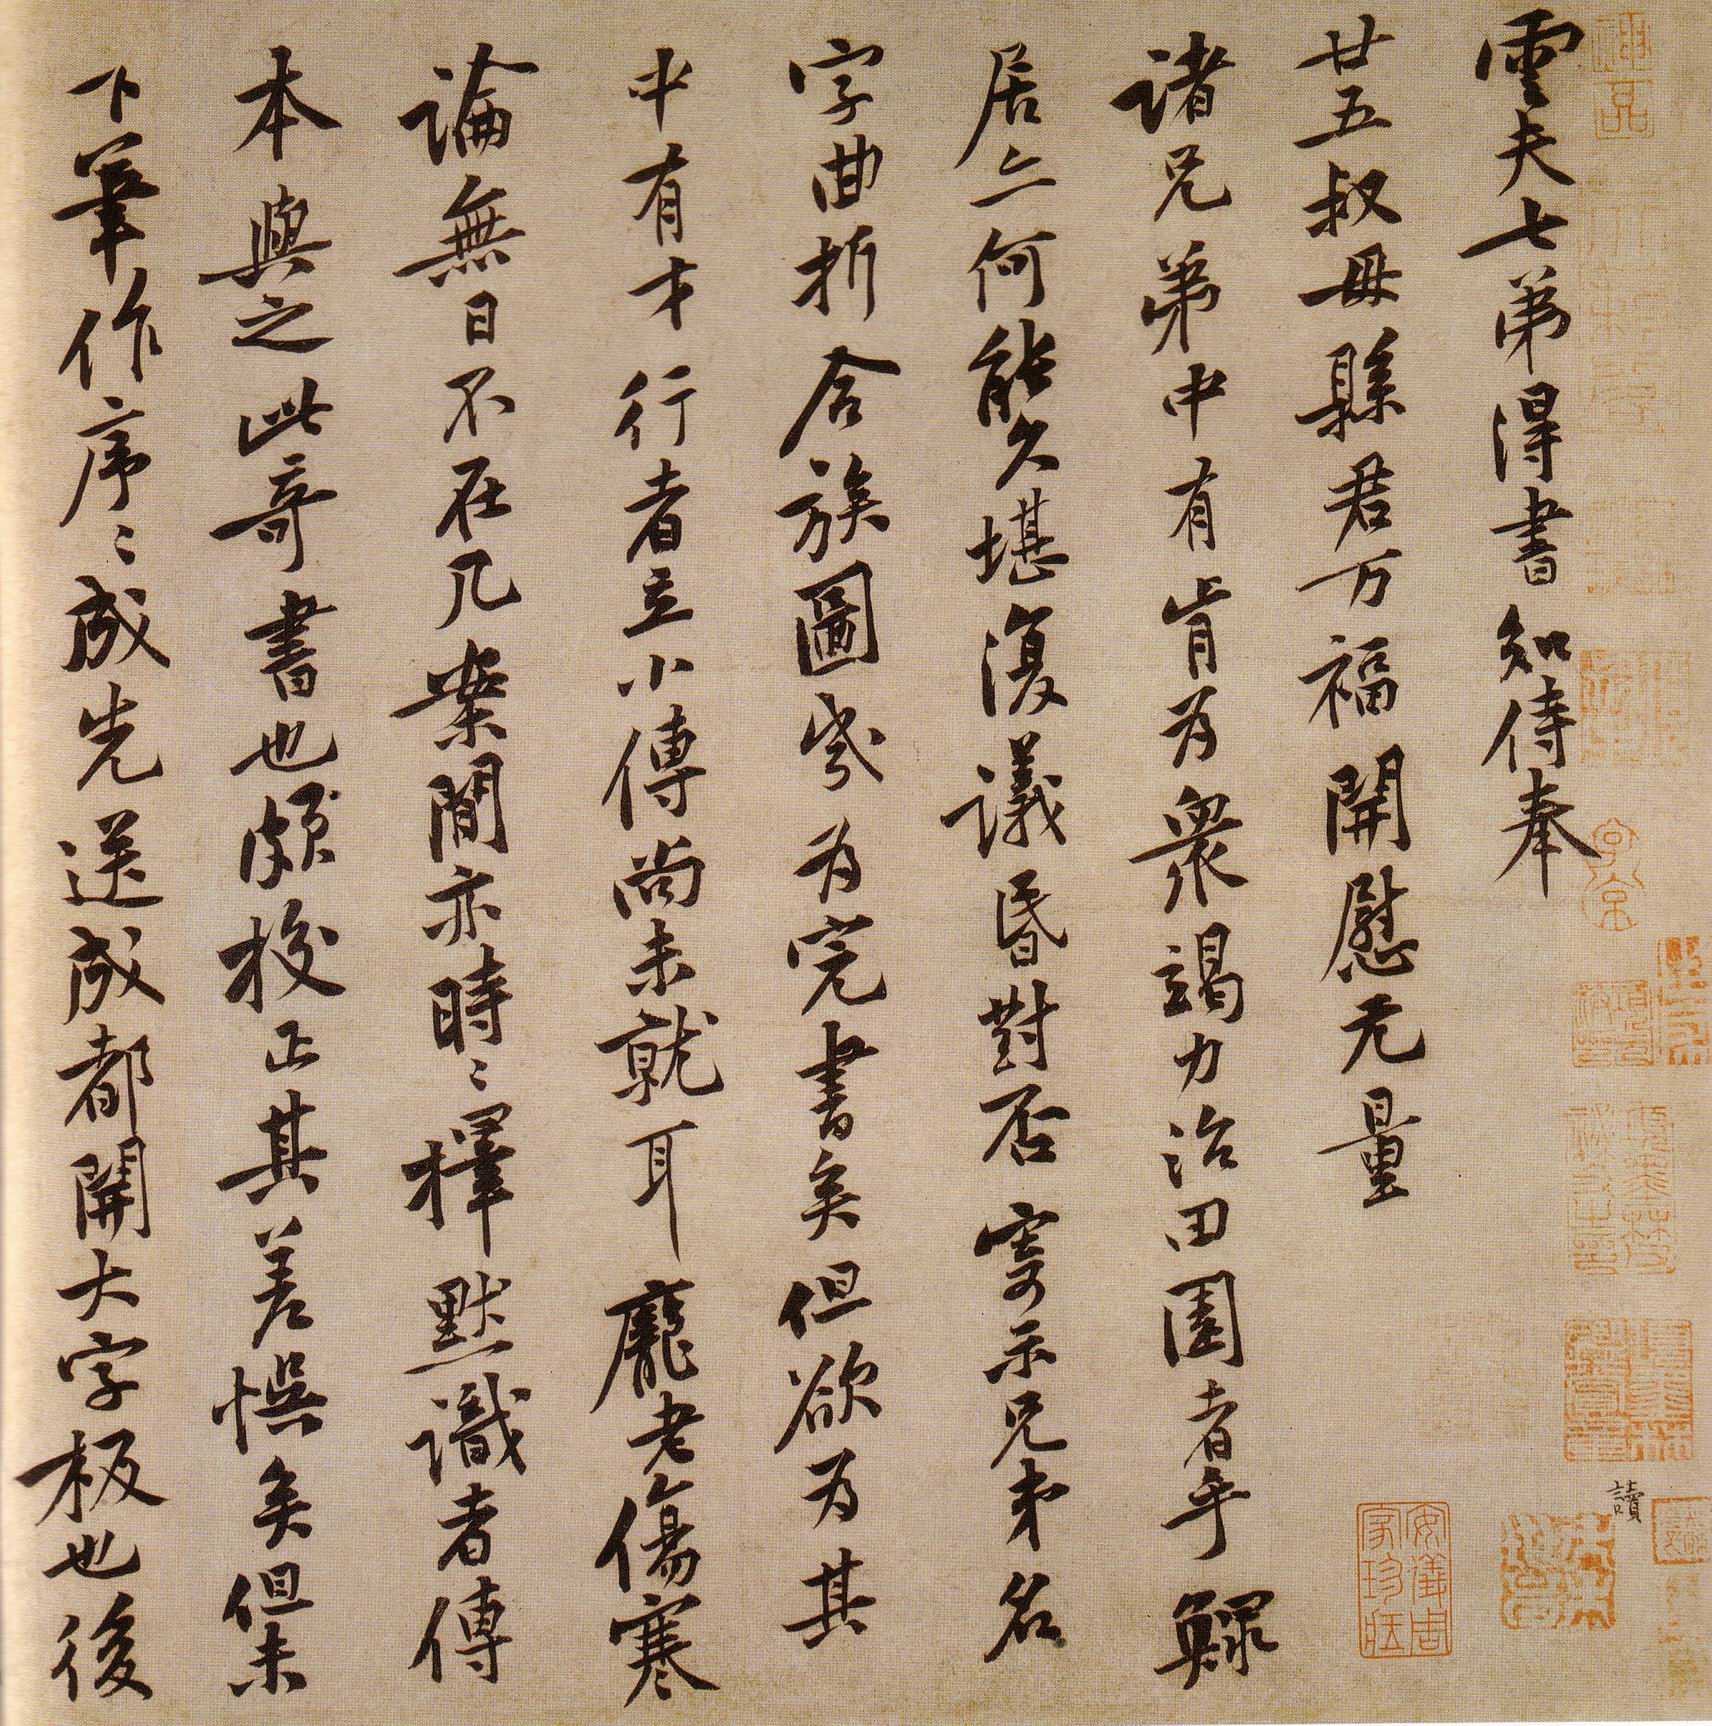 雲夫七弟得書知侍奉
廿五叔母縣君万福開慰无量
諸兄弟中有肯为衆竭力治田園者乎鰥
居亦何能久堪復議昏對否寄示兄弟名
字曲折合族圖歲为完書矣但欲为其
中有才行者立小傳尚未就耳龐老傷寒
論無日不在几案間亦時〻擇默識者傳
本與之此奇書也頗挍正其差悞矣但未
下筆作序〻成先送成都開大字板也後
讀
安儀周家珍藏